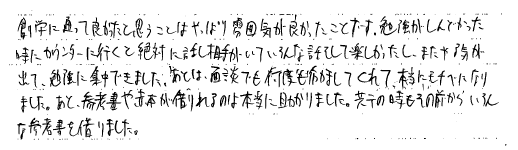 創学に通って良かったと思うことはやっぱり雰囲気が良かったことです。勉強がしんどかった
時にカウンターに行くと絶対に話し相手がいていろんな話をして楽しかったし、またやる気が
出て、勉強に集中できました。あとは、面談でも何度も励ましてくれて、本当に力になり
ました。あと、参考書や赤本が借りれるのは本当に助かりました。共テの時もその前からいろん
な参考書を借りました。